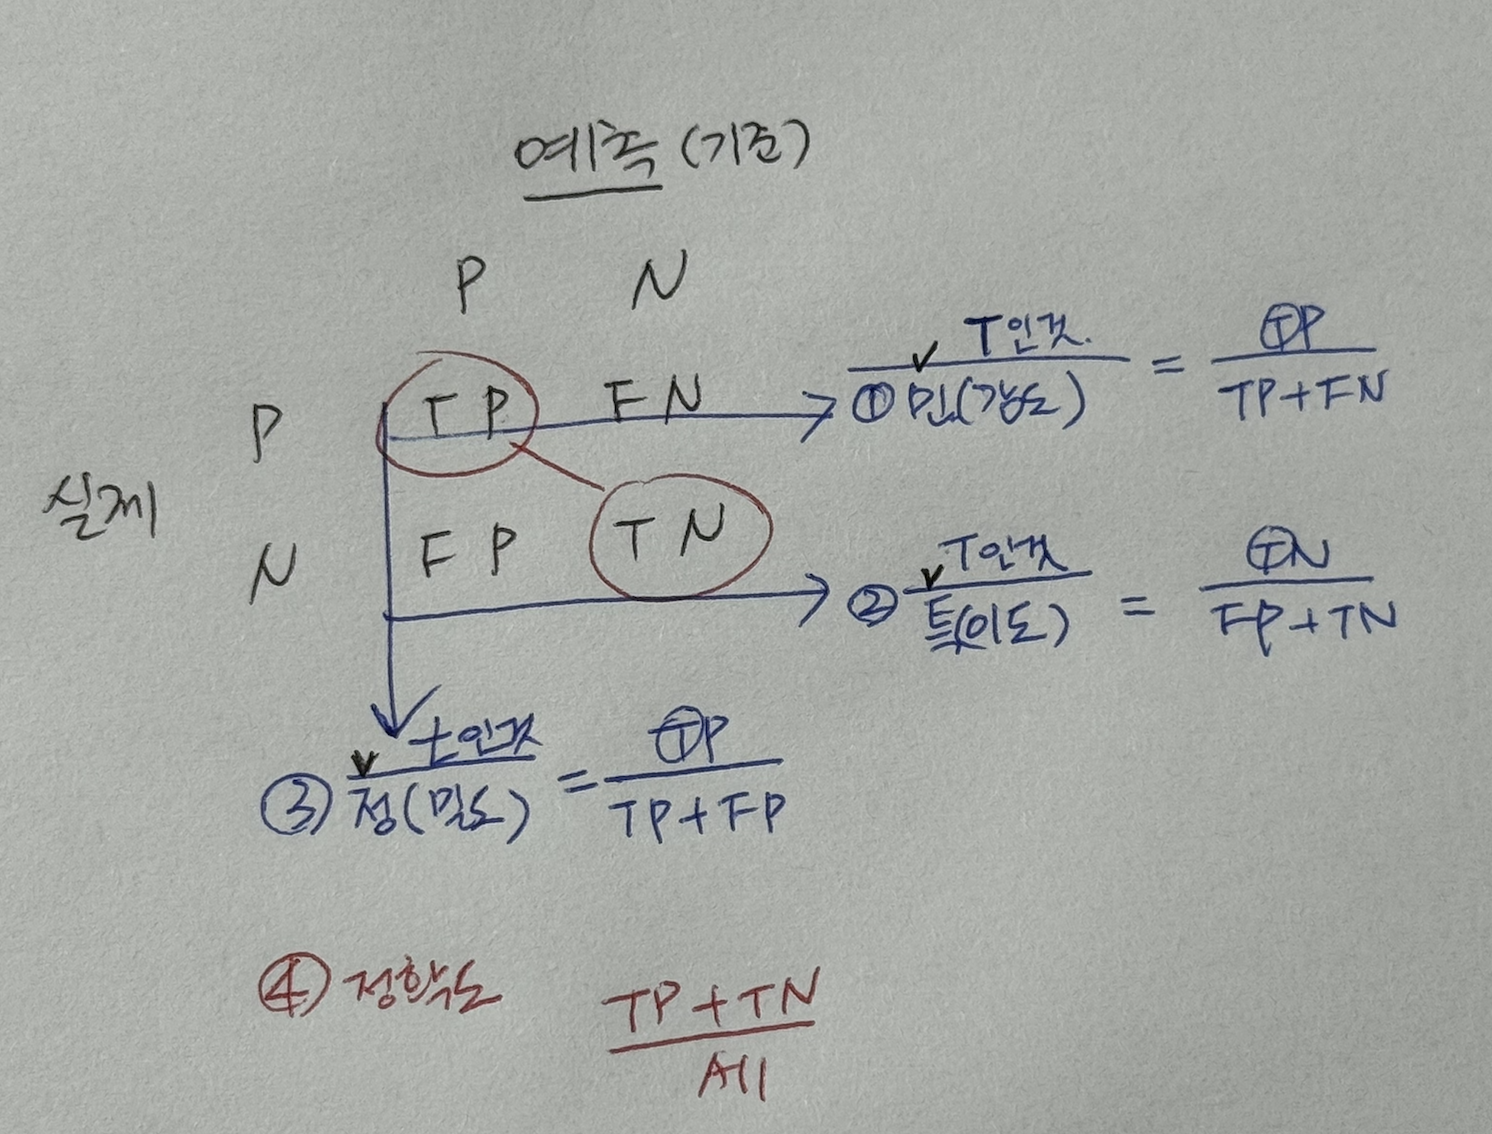 예측 (기준)
P N
P TP FN
실제
N FP TN
T인것. / ① 민(감도) = TP / TP+FN
T인것 / ② 특(이도) = TN / FP+TN
t인것 / ③ 정(밀도) = TP / TP+FP
④ 정확도 TP+TN / All